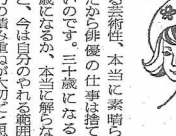 る芸術性、本当に素晴ら
たから俳優の仕事は捨て
いのです。三十歳になる
歳になるか、本当に解らな
と、今は自分のやれる範囲
積み重ねが